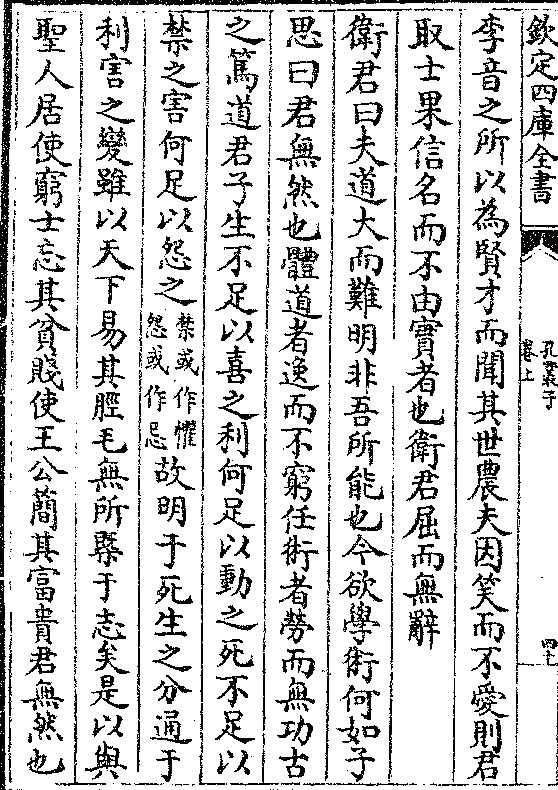 欽定四庫全書
孔叢子
卷上
四七
李音之所以為賢才而聞其世農夫因笑而不愛則君
取士果信名而不由實者也衛君屈而無辭
衛君曰夫道大而難明非吾所能也今欲學術何如子
思曰君無然也體道者逸而不窮任術者勞而無功古
之篤道君子生不足以喜之利何足以動之死不足以
禁之害何足以怨之禁或作懼怨或作忌故明于死生之分通于
利害之變雖以天下易其脛毛無所槩于志矣是以與
聖人居使窮士忘其貧賤使王公簡其富貴君無然也